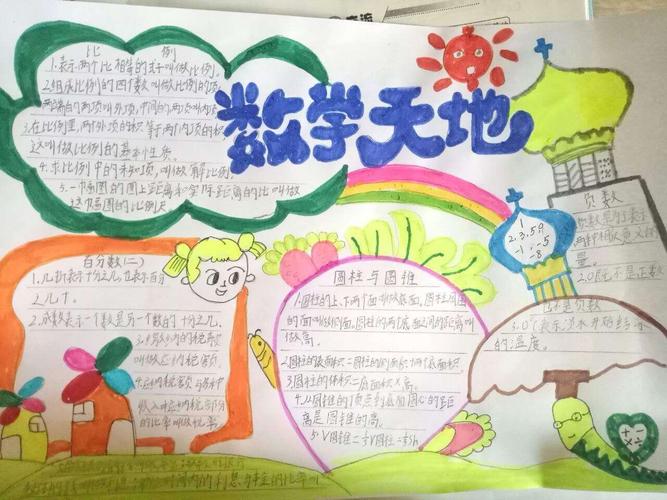 数学天地
比例
1.表示两个比相等的式子叫做比例。
2.组成比例的四个数叫做比例的项,
两端的两项叫外项,中间的两项叫内项
3.在比例里,两个外项的积等于两个内项的积,
这叫做比例的基本性质。
4.求比例中的未知项,叫做解比例
5.一幅图的图上距离和实际距离的比叫做
这幅图的比例尺
百分数(二)
1.几折表示十分之几,也表示百分
之几十。
2.成数表示一个数是另一个数的十分之几,
叫做应纳税额
4.应纳税额与各种
收入中应纳税部分
的比率叫做税率
圆柱与圆锥
1.圆柱的上、下两个面叫做底面,圆柱周围
的面叫做侧面,圆柱的两个底面之间的距离叫
做高。
2.圆柱的表面积=圆柱的侧面积+两个底面积。
3.圆柱的体积=底面积×高。
4.从圆锥的顶点到底面圆心的距
离是圆锥的高。
5.V圆锥=⅓V圆柱=⅓Sh
1
2.3.5.9
-1 -8 -5
负数
两种相反意义的
量。
2.0既不是正数
也不是负数
3.0℃表示淡水开始结冰
的温度。
+ -
× ÷